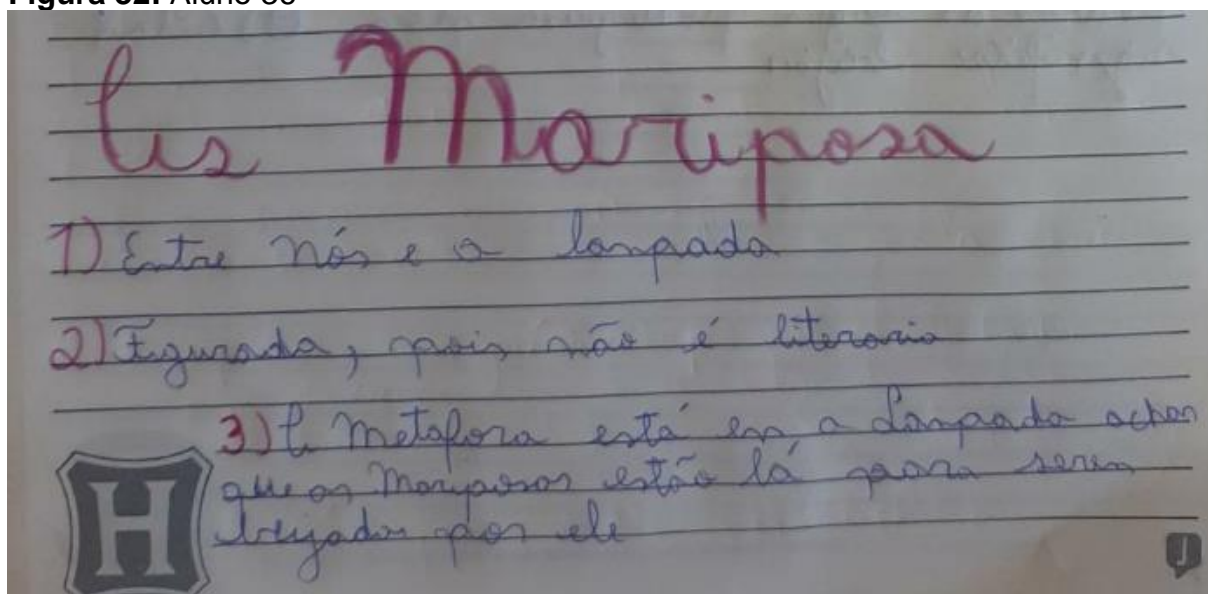 As Mariposa
1) Entre nós e a lanpada
2) Figurada, pois não é literario
3) A Metafora está em, a Lanpada achar
que as Mariposas estão lá para serem
beijadas por ele
H
J